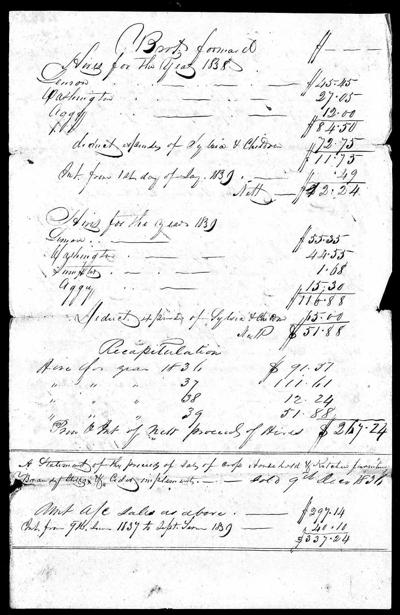 Brot forward $ - - -
Hires for the Year 1838
Lemon $45.45
Washington 27.05
Aggy 12.00
$84.50
deduct expenses of Sylvia & Children 72.75
$11.75
Int. from 1st day of Jay. 1839 " .49
Nett $12.24
Hires for the year 1839
Lemon $55.35
Washington 44.55
1.68
Aggy 15.30
$116.88
Deduct expenses of Sylvia & Children 65.00
Nett $51.88
Recapitulation
Hire for year 1836 $91.51
" " " 37 111.61
" " " 38 12.24
" " " 39 51.88
Prin & Int of Nett proceeds of Hires $267.24
A Statement of the proceeds of Sale of Crop Household & Kitchen furniture
Sold 9th Decr 1836
Amt A/c Sales as above $297.14
Int. from 9th 1837 to Sept. Term 1839 40.10
$337.24